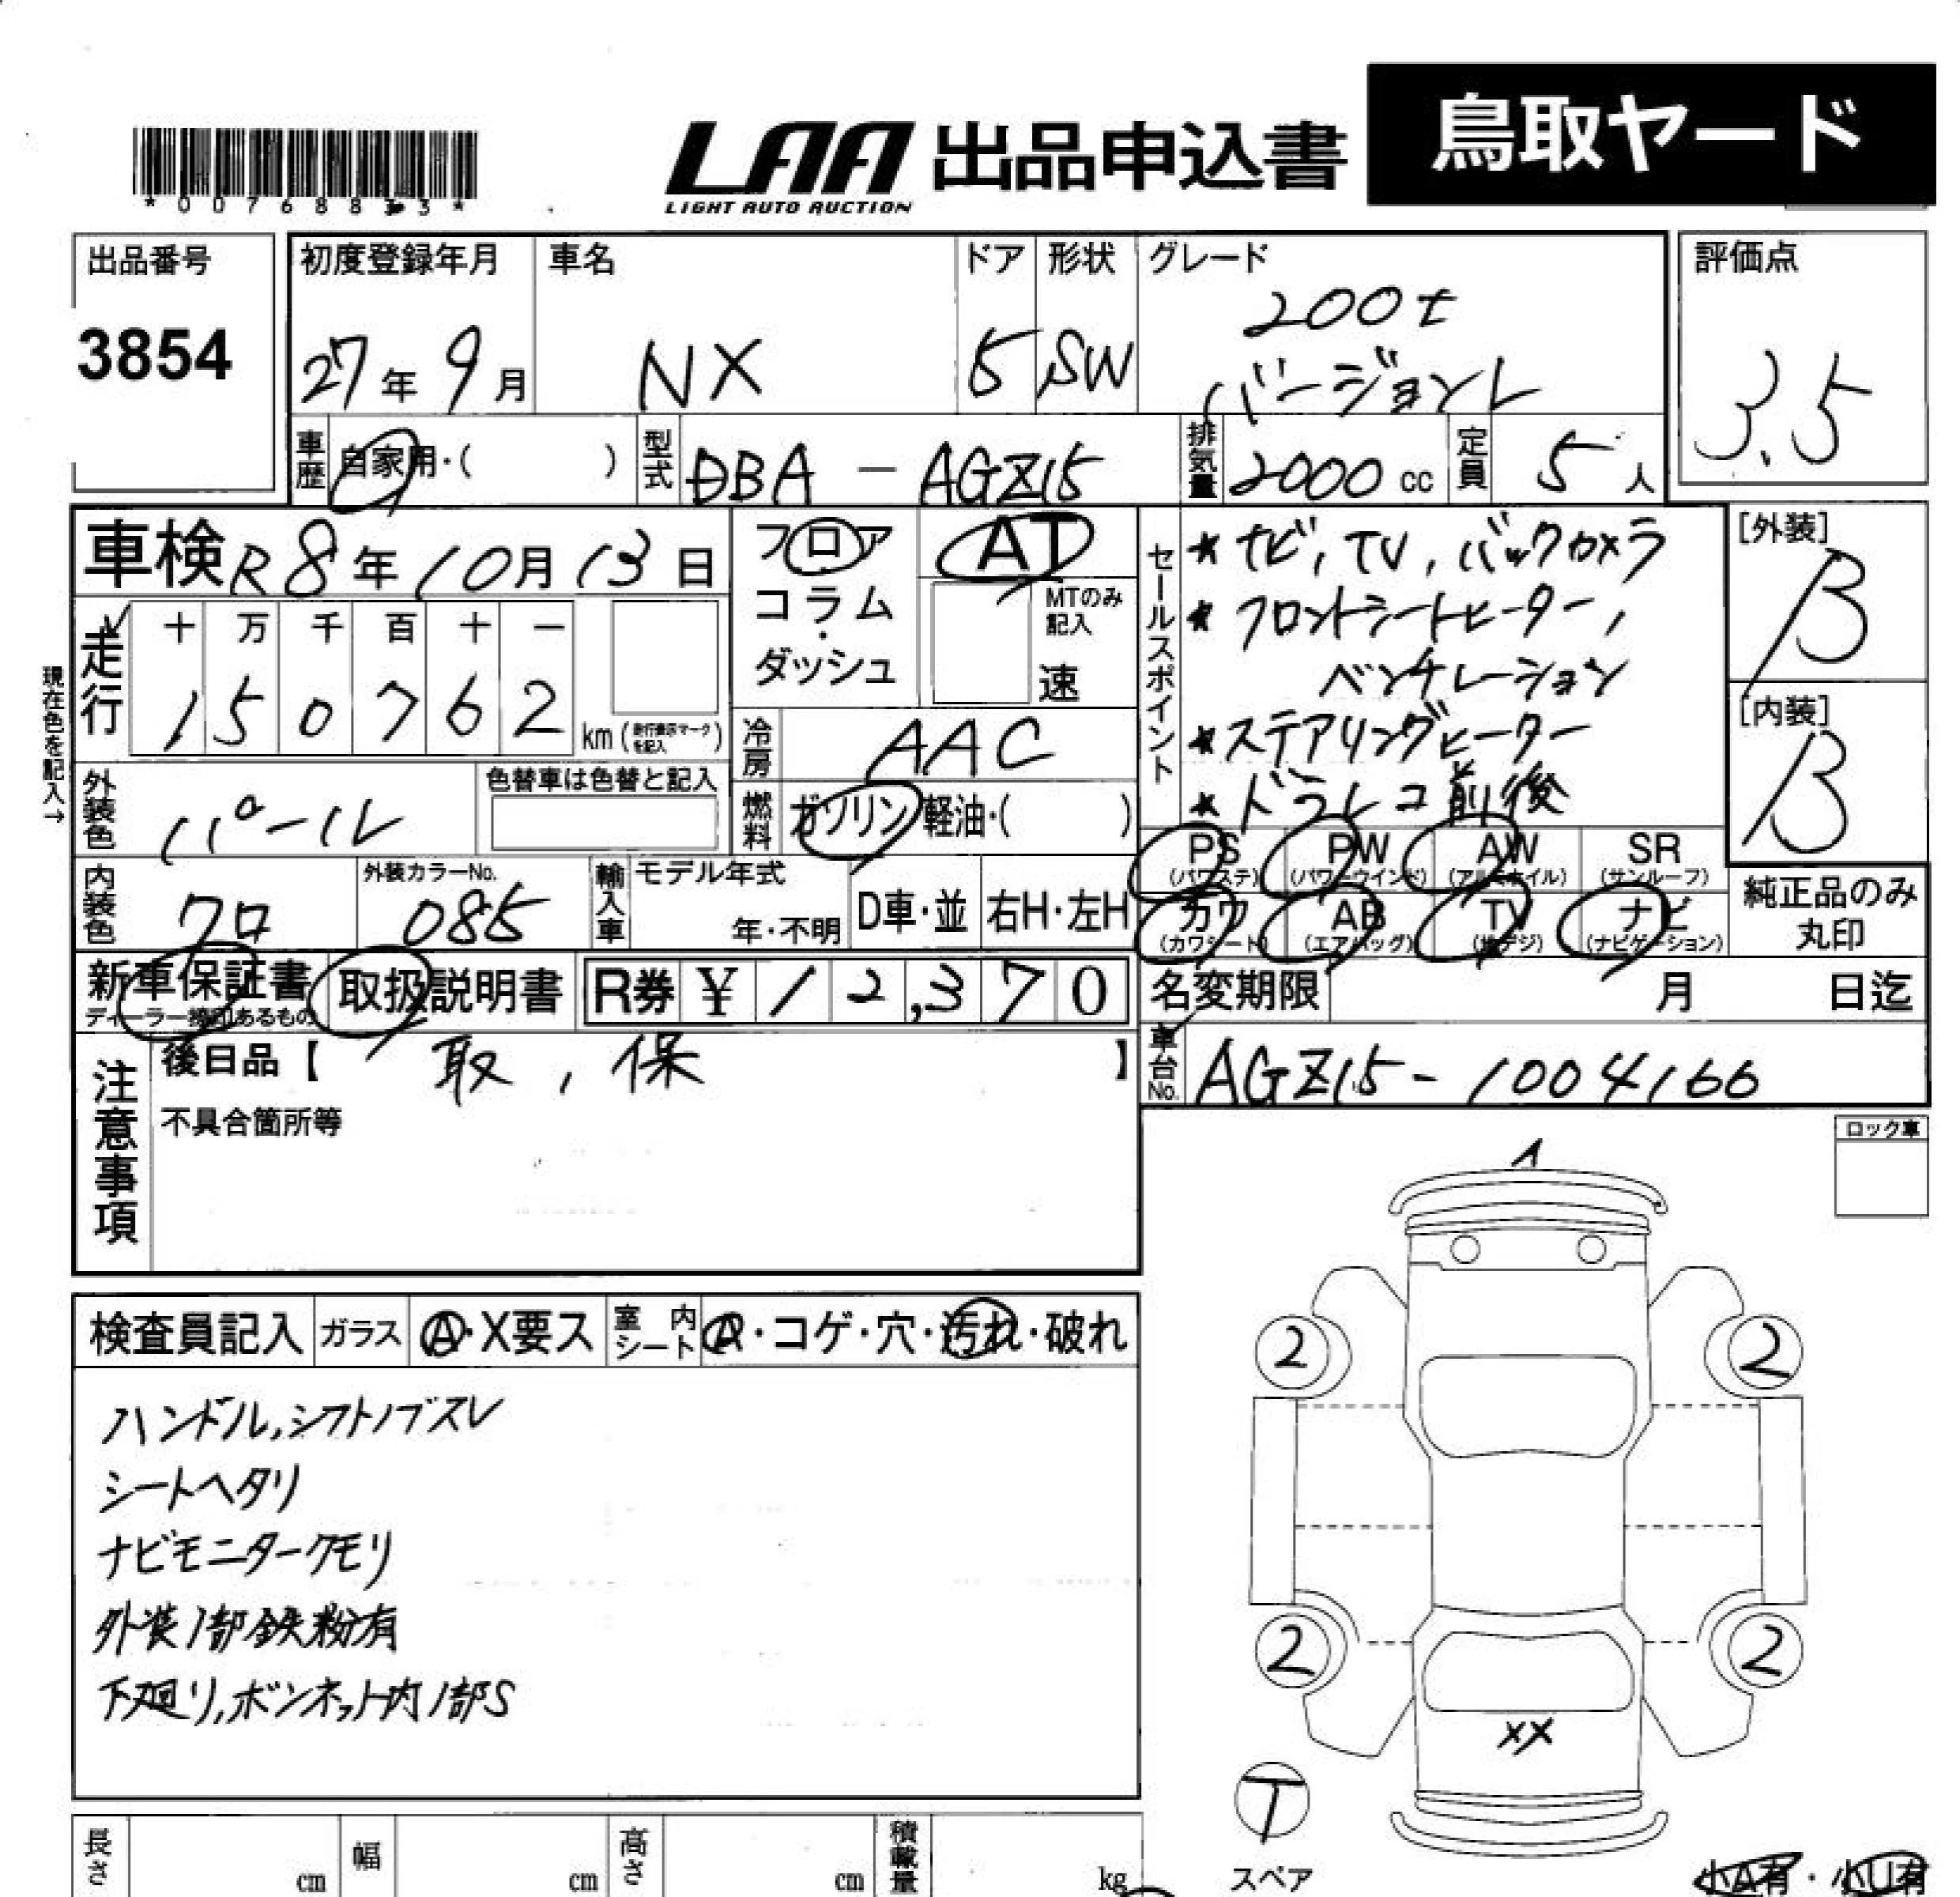 *00768833*
LAA 出品申込書 鳥取ヤード
LIGHT AUTO AUCTION
出品番号 3854
初度登録年月 27年 9月
車名 NX
ドア 5
形状 SW
グレード 200t
バージョンL
評価点 3.5
車歴 自家用・( )
型式 DBA - AGZ15
排気量 2000 cc
定員 5 人
車検 R8年 10月 13日
フロア
コラム
・
ダッシュ
AT
MTのみ
記入
速
セールスポイント
★ナビ, TV, バックカメラ
★フロントシートヒーター,
ベンチレーション
★ステアリングヒーター
★ドラレコ前後
[外装] B
[内装] B
現在色を記入→
走行 十 万 千 百 十 一
1 5 0 7 6 2 km (走行表示マークを記入)
冷房 AAC
外装色 パール
色替車は色替と記入
燃料 ガソリン・軽油・( )
PS (パワステ) PW (パワーウインド) AW (アルミホイル) SR (サンルーフ)
カワ (カワシート) AB (エアバッグ) TV (地デジ) ナビ (ナビゲーション)
純正品のみ
丸印
内装色 クロ
外装カラーNo. 085
輸入車 モデル年式 年・不明 D車・並 右H・左H
新車保証書
ディーラー捺印あるもの
取扱説明書
R券 ¥ 12,370
名変期限 月 日迄
車台No. AGZ15-1004166
注意事項
後日品【 取, 保 】
不具合箇所等
ロック車
A
検査員記入 ガラス A・X要ス 室内シート A・コゲ・穴・汚れ・破れ
ハンドル,シフトノブスレ
シートヘタリ
ナビモニタークモリ
外装1部鉄粉有
下廻り,ボンネット内1部S
2 2
2 2
XX
T
スペア
長さ cm 幅 cm 高さ cm 積載量 kg
小A有・小U有